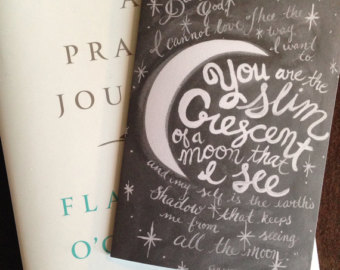 A
PRA
JOU
FLA
O'C
Dear God,
I cannot love Thee the
way
I want
to.
You are the
slim
Crescent
of a
moon that
I see
and my self is the earth's
shadow that keeps
me from
seeing
all the moon.